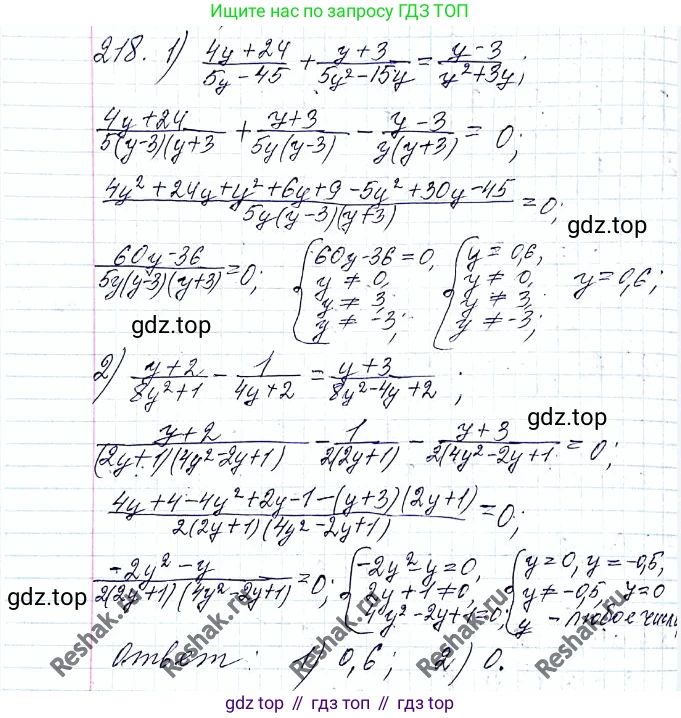 Ищите нас по запросу ГДЗ ТОП
218. 1) (4y+24)/(5y-45) + (y+3)/(5y²-15y) = (y-3)/(y²+3y);
(4y+24)/(5(y-3)(y+3) + (y+3)/(5y(y-3)) - (y-3)/(y(y+3)) = 0;
(4y²+24y+y²+6y+9-5y²+30y-45)/(5y(y-3)(y+3)) = 0;
gdz.top
(60y-36)/(5y(y-3)(y+3)) = 0; { 60y-36=0, y≠0, y≠3, y≠-3; { y=0,6, y≠0, y≠3, y≠-3; y=0,6;
gdz.top
2) (y+2)/(8y²+1) - 1/(4y+2) = (y+3)/(8y²-4y+2);
gdz.top
(y+2)/((2y+1)(4y²-2y+1)) - 1/(2(2y+1)) - (y+3)/(2(4y²-2y+1) = 0;
(4y+4-4y²+2y-1-(y+3)(2y+1))/(2(2y+1)(4y²-2y+1)) = 0;
(-2y²-y)/(2(2y+1)(4y²-2y+1)) = 0; { -2y²-y=0, 2y+1≠0, 4y²-2y+1=0; { y=0, y=-0,5, y≠-0,5, y=0 y - любое число
gdz.top
Reshak.ru
Reshak.ru
Reshak.ru
Reshak.ru
Ответ: 1) 0,6; 2) 0.
gdz top // гдз топ // gdz.top